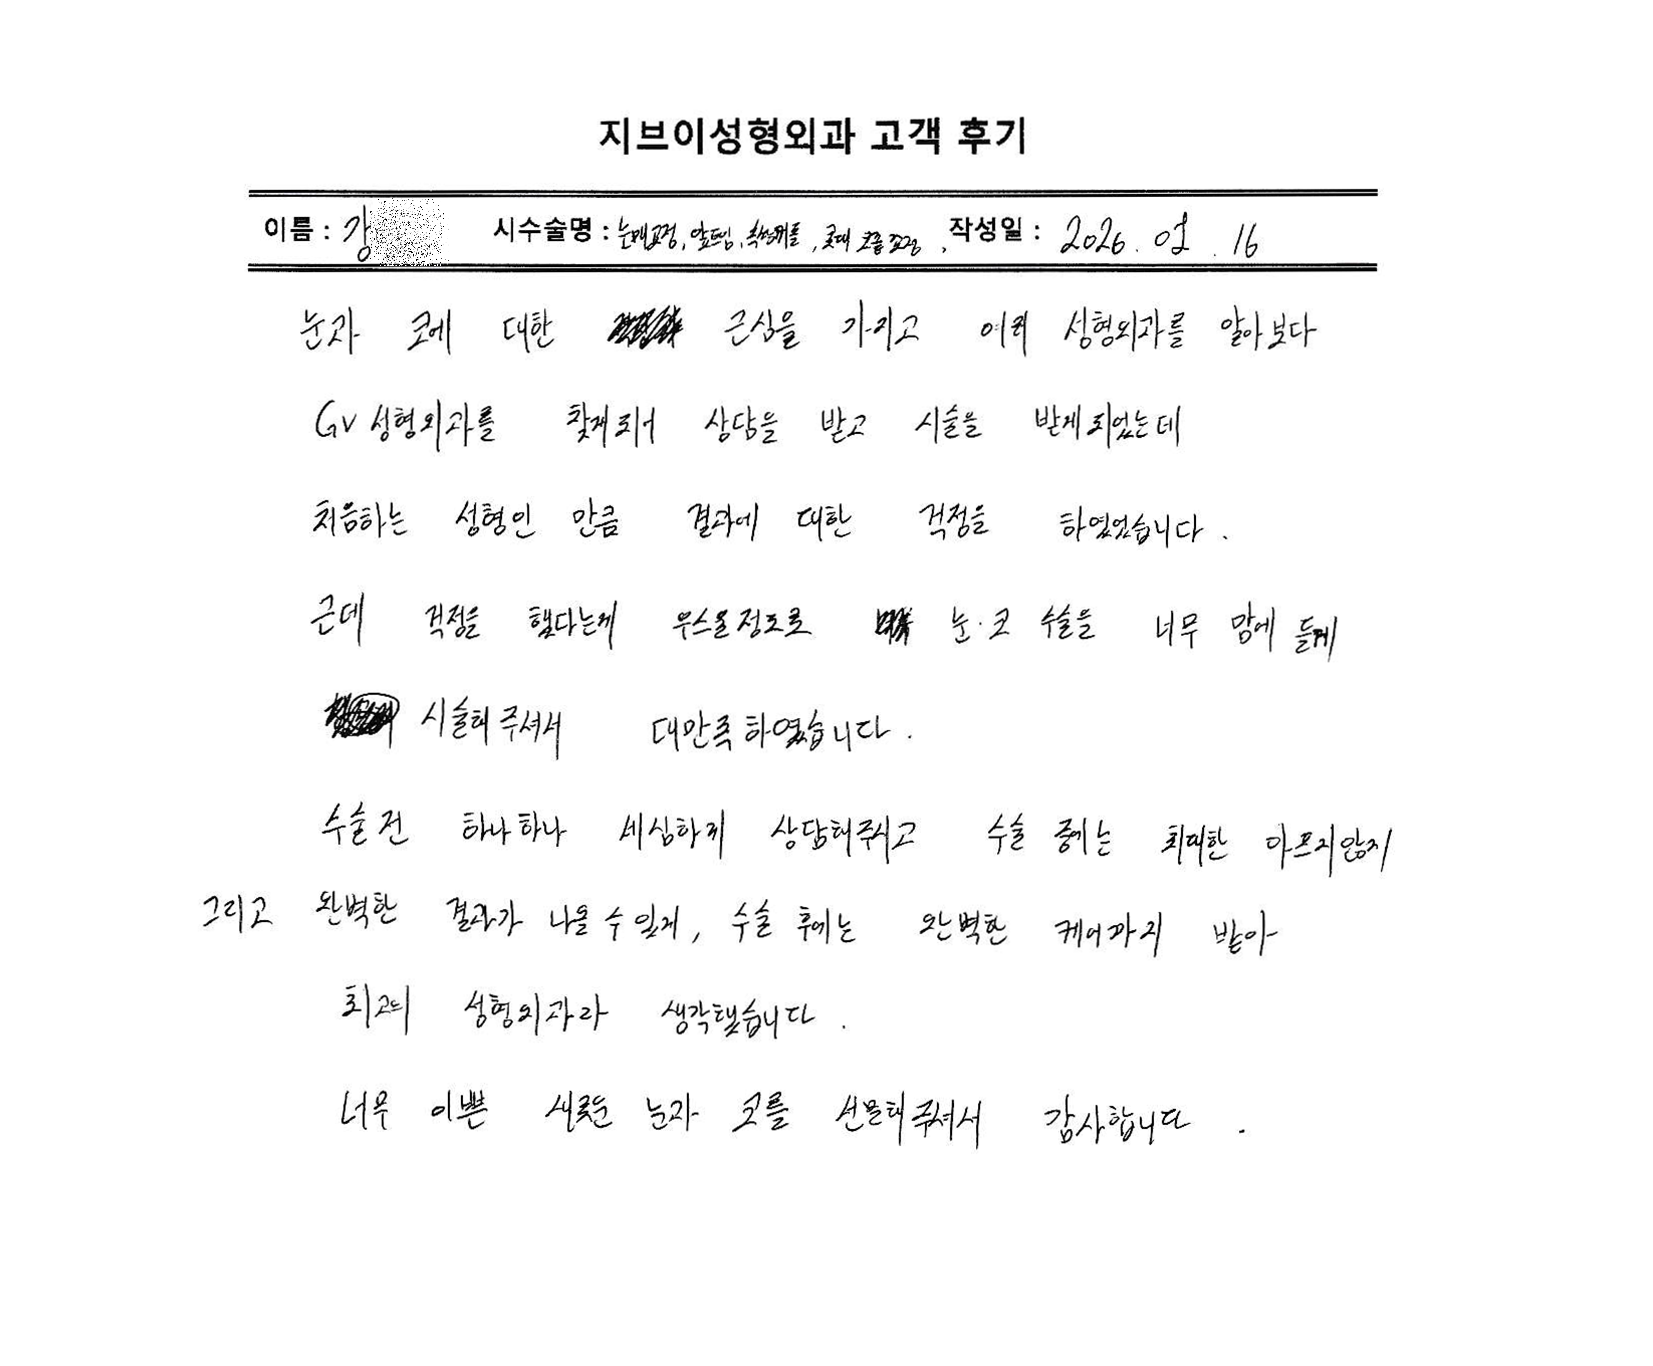 지브이성형외과 고객 후기
이름 : 강 시수술명 : 눈매교정, 앞트임, 콧대 작성일 : 2026. 01. 16
눈과 코에 대한 근심을 가지고 여러 성형외과를 알아보다
GV성형외과를 찾게되어 상담을 받고 시술을 받게되었는데
처음하는 성형인 만큼 결과에 대한 걱정을 하였었습니다.
근데 걱정을 했다는게 우스울정도로 눈·코 수술을 너무 맘에 들게
시술해주셔서 대만족하였습니다.
수술전 하나하나 세심하게 상담해주시고 수술 중에는 최대한 아프지않게
그리고 완벽한 결과가 나올 수 있게, 수술 후에는 완벽한 케어까지 받아
최고의 성형외과라 생각했습니다.
너무 이쁜 새로운 눈과 코를 선물해주셔서 감사합니다.